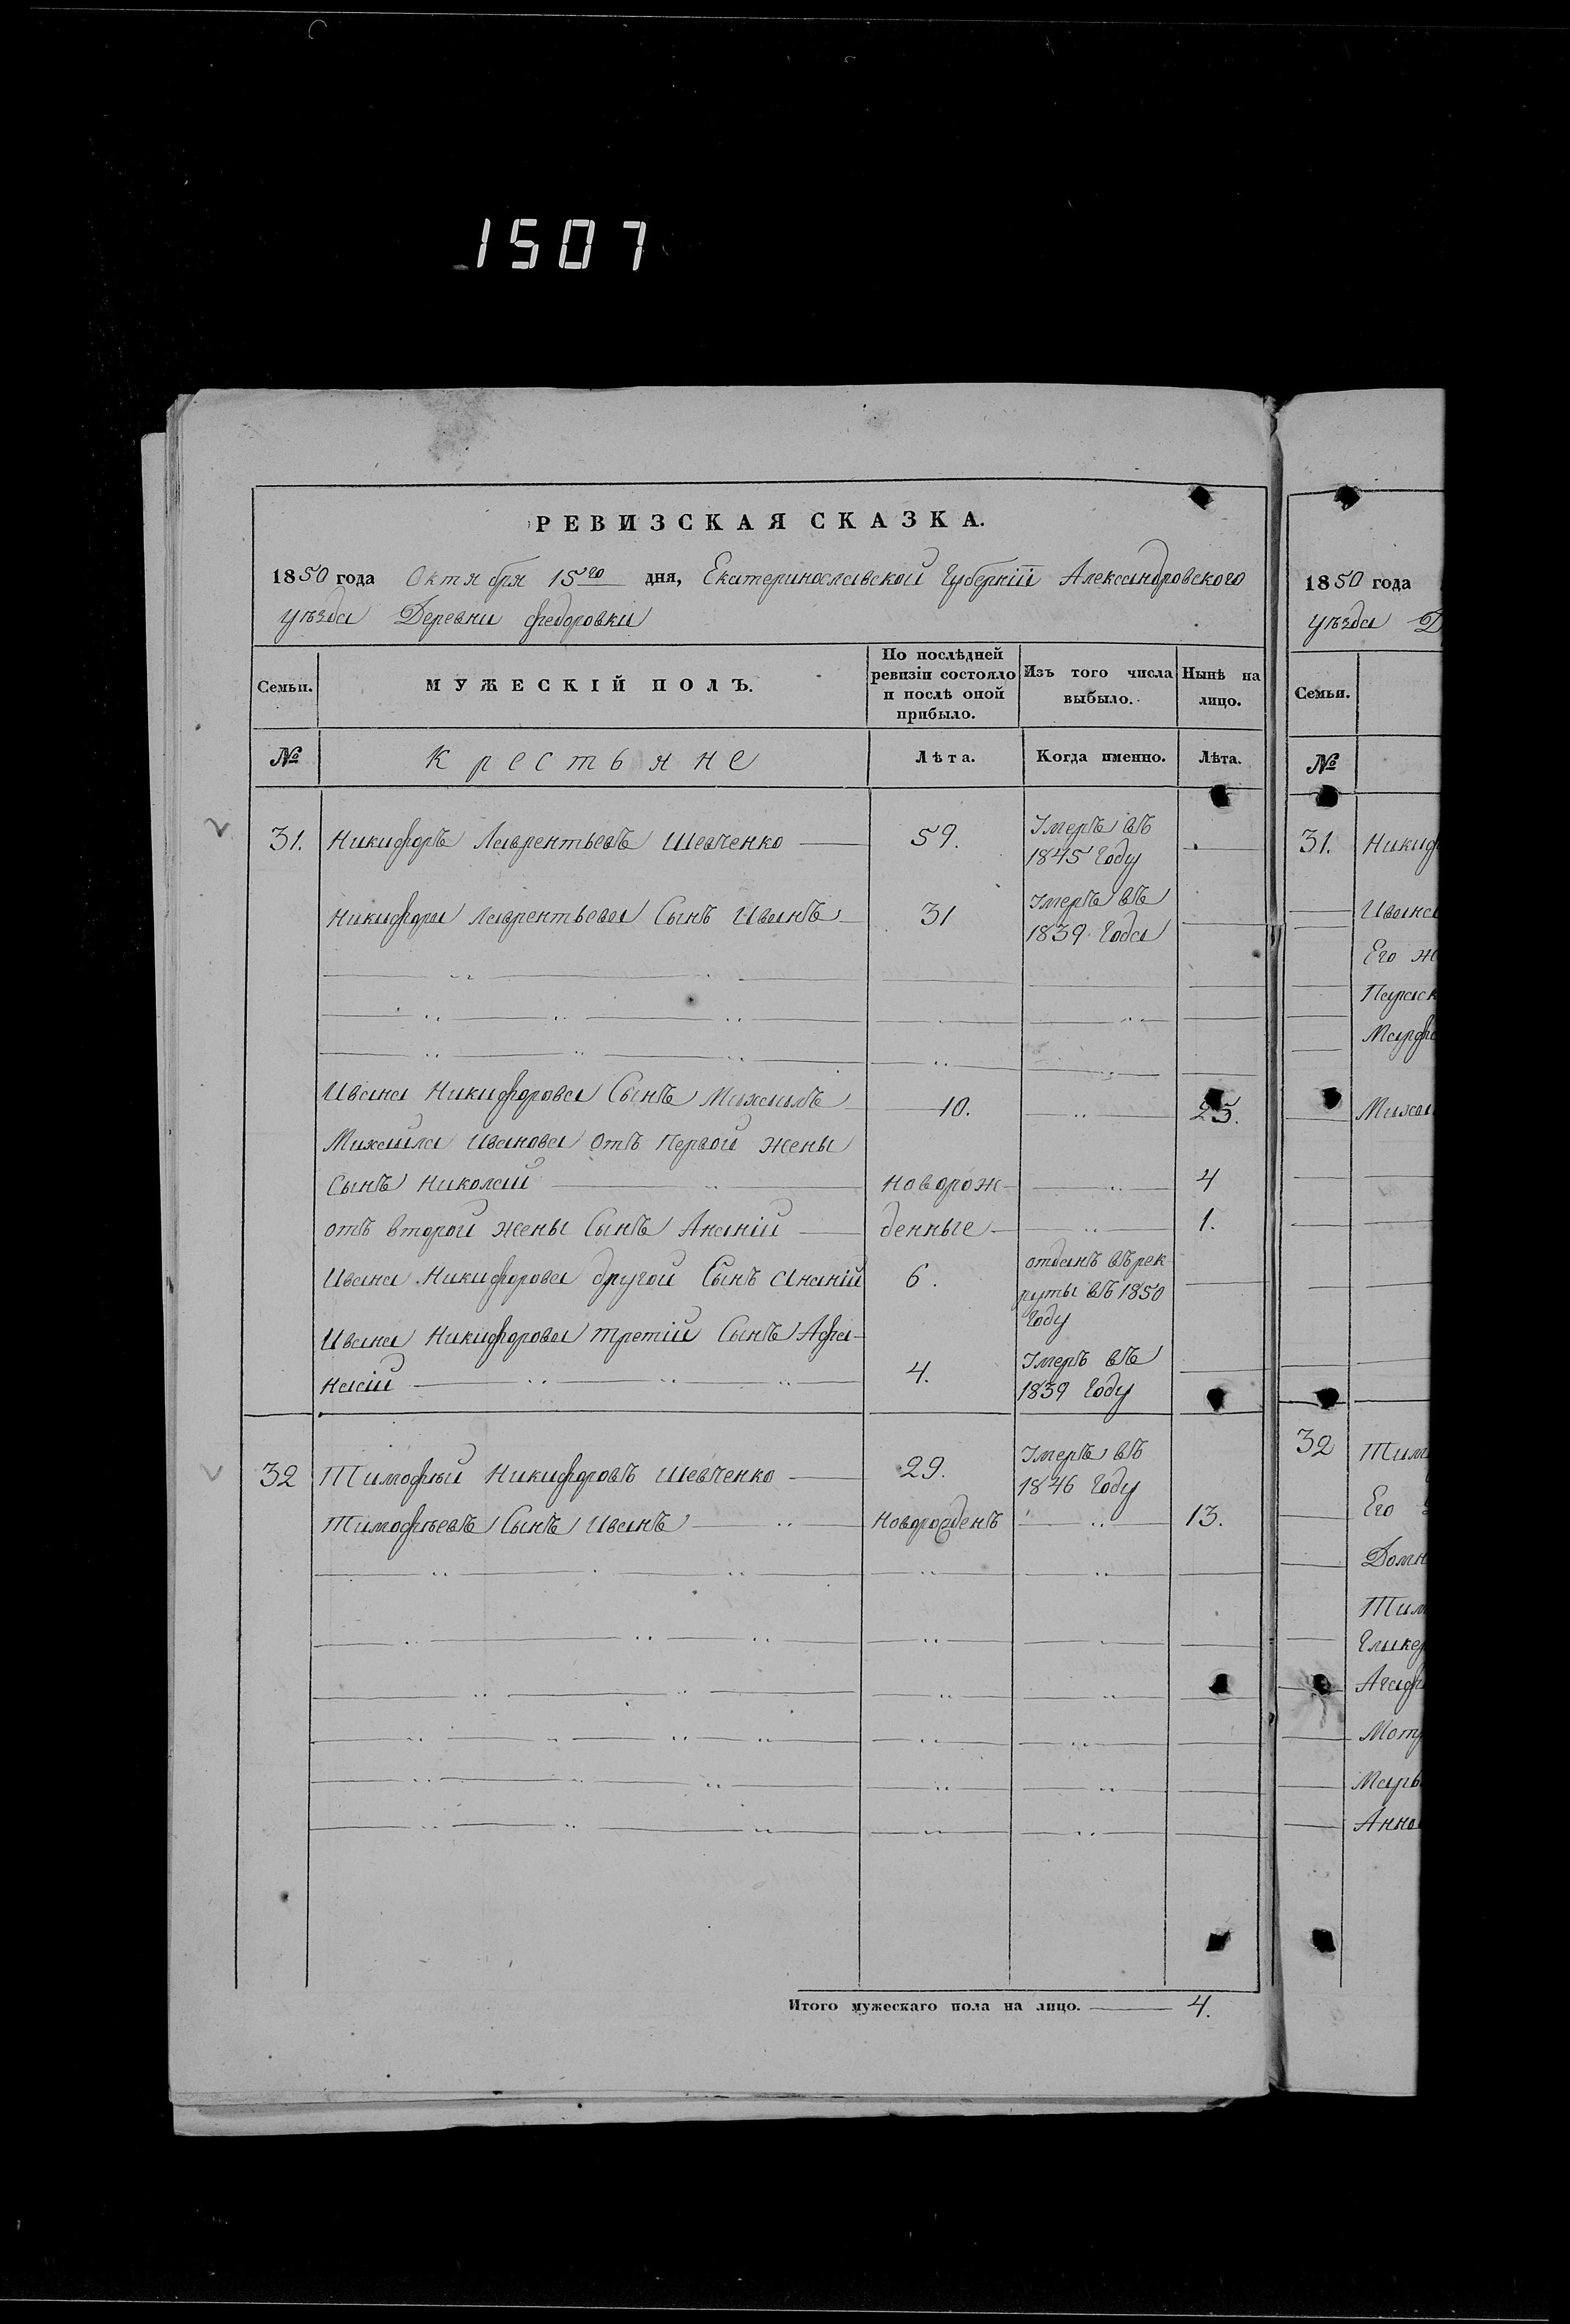 1507
РЕВИЗСКАЯ СКАЗКА.
1850 года Октября 15го дня, Екатеринославской Губерніи Александровского
уѣзда Деревни Федоровки
Семьи. МУЖЕСКІЙ ПОЛЪ. По послѣдней ревизіи состояло и послѣ оной прибыло. Изъ того числа выбыло. Нынѣ на лицо.
№ Крестьяне Лѣта. Когда именно. Лѣта.
31. Никифоръ Лаврентьевъ Шевченко 59. Умеръ въ
1845 Году
Никифора Лаврентьева Сынъ Иванъ 31 Умеръ въ
1839 Года
Ивана Никифорова Сынъ Михаилъ 10. 25.
Михаила Иванова отъ Первой жены
Сынъ Николай новорож 4
отъ второй жены Сынъ Ананій денные 1.
Ивана Никифорова другой Сынъ Ананій 6. отданъ въ рек
руты въ 1850
Году
Ивана Никифорова третій Сынъ Афа-
насій 4. Умеръ въ
1839 Году
32 Тимофей Никифоровъ Шевченко 29. Умеръ въ
1846 Году
Тимофѣевъ Сынъ Иванъ Новорожденъ 13.
Итого мужескаго пола на лицо. 4.
1850 года
уѣзда Д
Семьи.
№
31. Никиф
Ивана
Его же
Параск
Марфа
Михаи
32 Тим
Его
Домн
Тим
Гликер
Агаф
Мотр
Марь
Анна